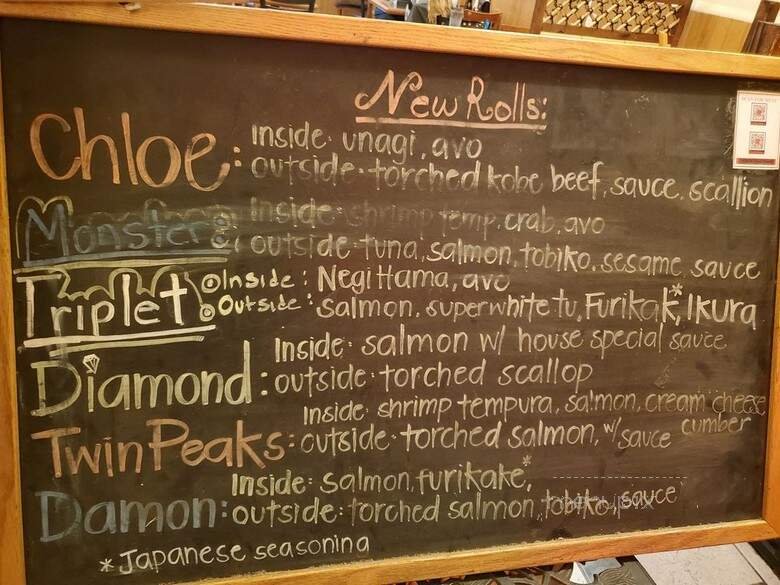 New Rolls:
Chloe: Inside: unagi, avo
outside: torched kobe beef, sauce, scallion
Monster: Inside: shrimp temp, crab, avo
outside: tuna, salmon, tobiko, sesame sauce
Triplet: Inside: Negi Hama, avo
Outside: salmon, superwhite tu, Furikak*, Ikura
Diamond: Inside: salmon w/ house special sauce
outside: torched scallop
Twin Peaks: Inside: shrimp tempura, salmon, cream cheese
cumber
outside: torched salmon, w/ sauce
Damon: Inside: salmon, furikake*,
outside: torched salmon, tobiko, sauce
*Japanese seasoning